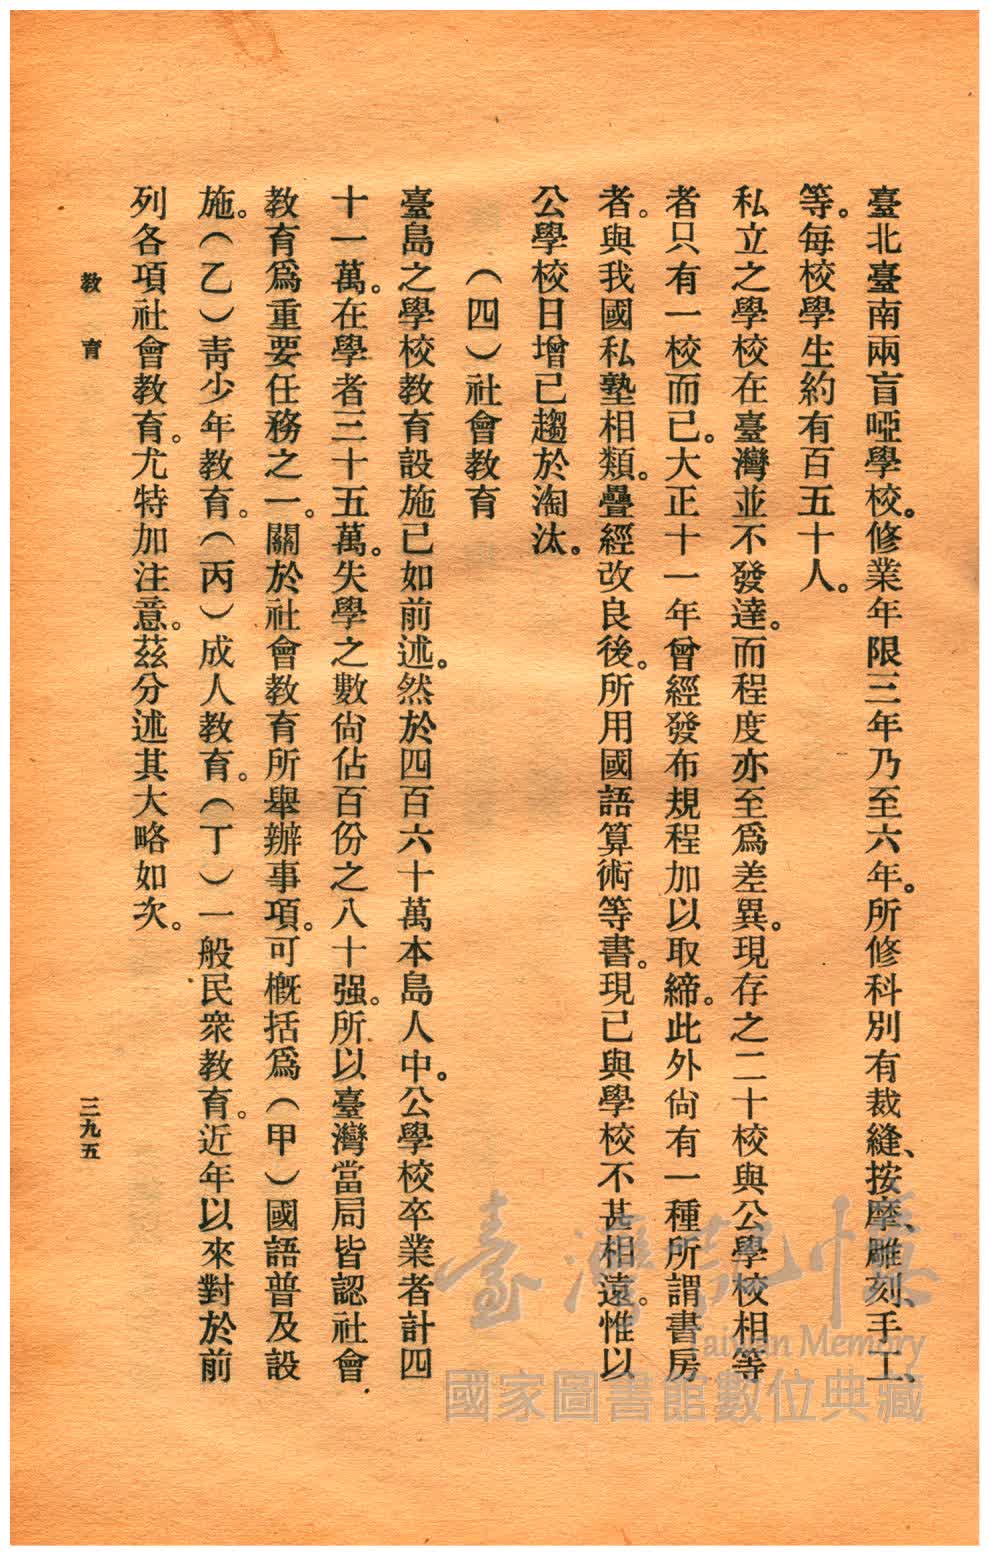 臺北臺南兩盲啞學校。修業年限三年乃至六年。所修科別有裁縫、按摩、雕刻、手工、
等。每校學生約有百五十人。
私立之學校在臺灣並不發達。而程度亦至爲差異。現存之二十校與公學校相等
者只有一校而已。大正十一年曾經發布規程加以取締。此外尙有一種所謂書房
者。與我國私塾相類。疊經改良後。所用國語算術等書。現已與學校不甚相遠。惟以
公學校日增已趨於淘汰。
(四)社會教育
臺島之學校教育設施已如前述。然於四百六十萬本島人中。公學校卒業者計四
十一萬。在學者三十五萬。失學之數尙佔百份之八十强。所以臺灣當局皆認社會
教育爲重要任務之一。關於社會教育所舉辦事項。可概括爲(甲)國語普及設
施。(乙)靑少年教育。(丙)成人教育。(丁)一般民衆教育。近年以來對於前
列各項社會教育。尤特加注意。茲分述其大略如次。
教育
三九五
臺灣記憶
Taiwan Memory
國家圖書館數位典藏